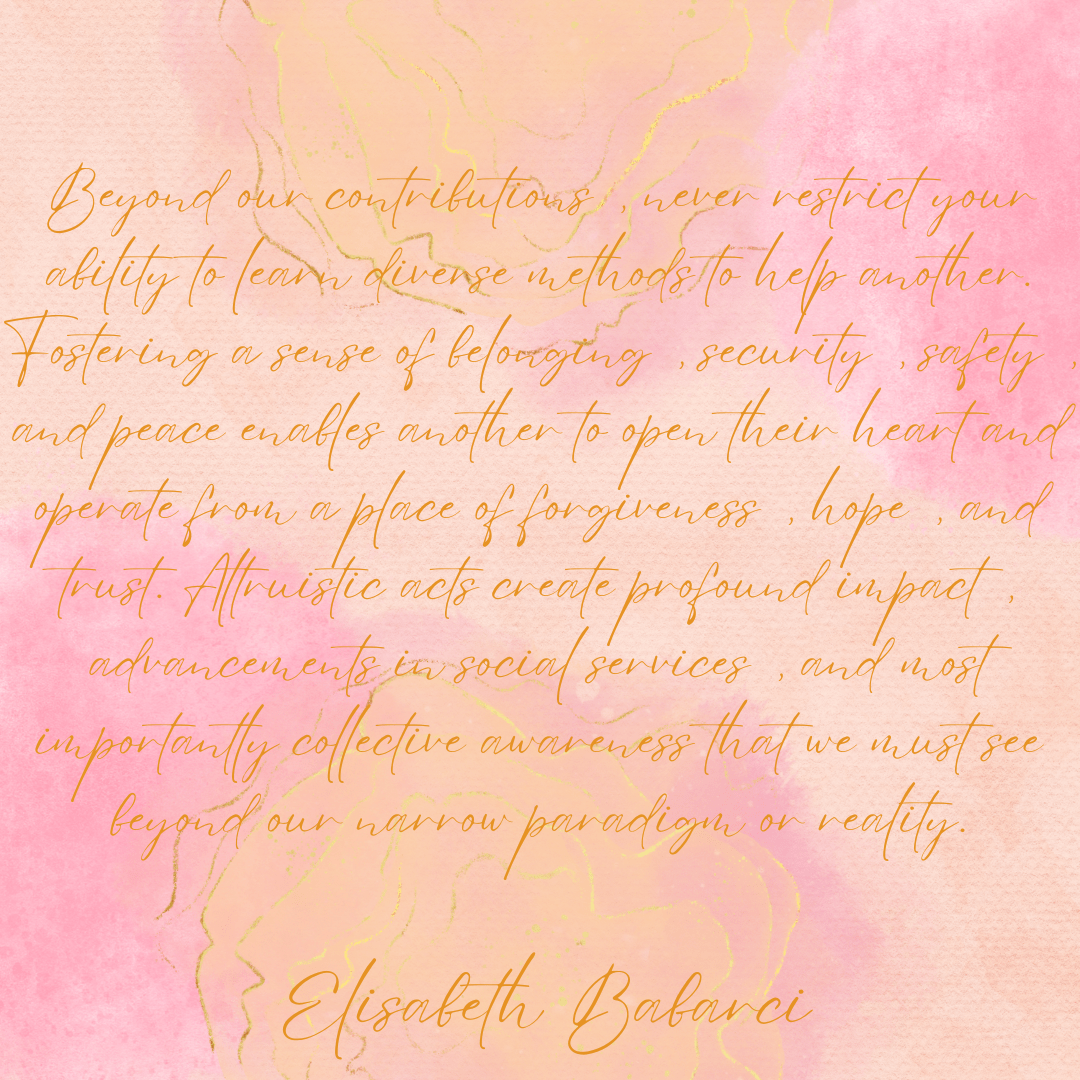 Beyond our contributions , never restrict your
ability to learn diverse methods to help another.
Fostering a sense of belonging , security , safety ,
and peace enables another to open their heart and
operate from a place of forgiveness , hope , and
trust. Altruistic acts create profound impact ,
advancements in social services , and most
importantly collective awareness that we must see
beyond our narrow paradigm or reality.
Elisabeth Babarci